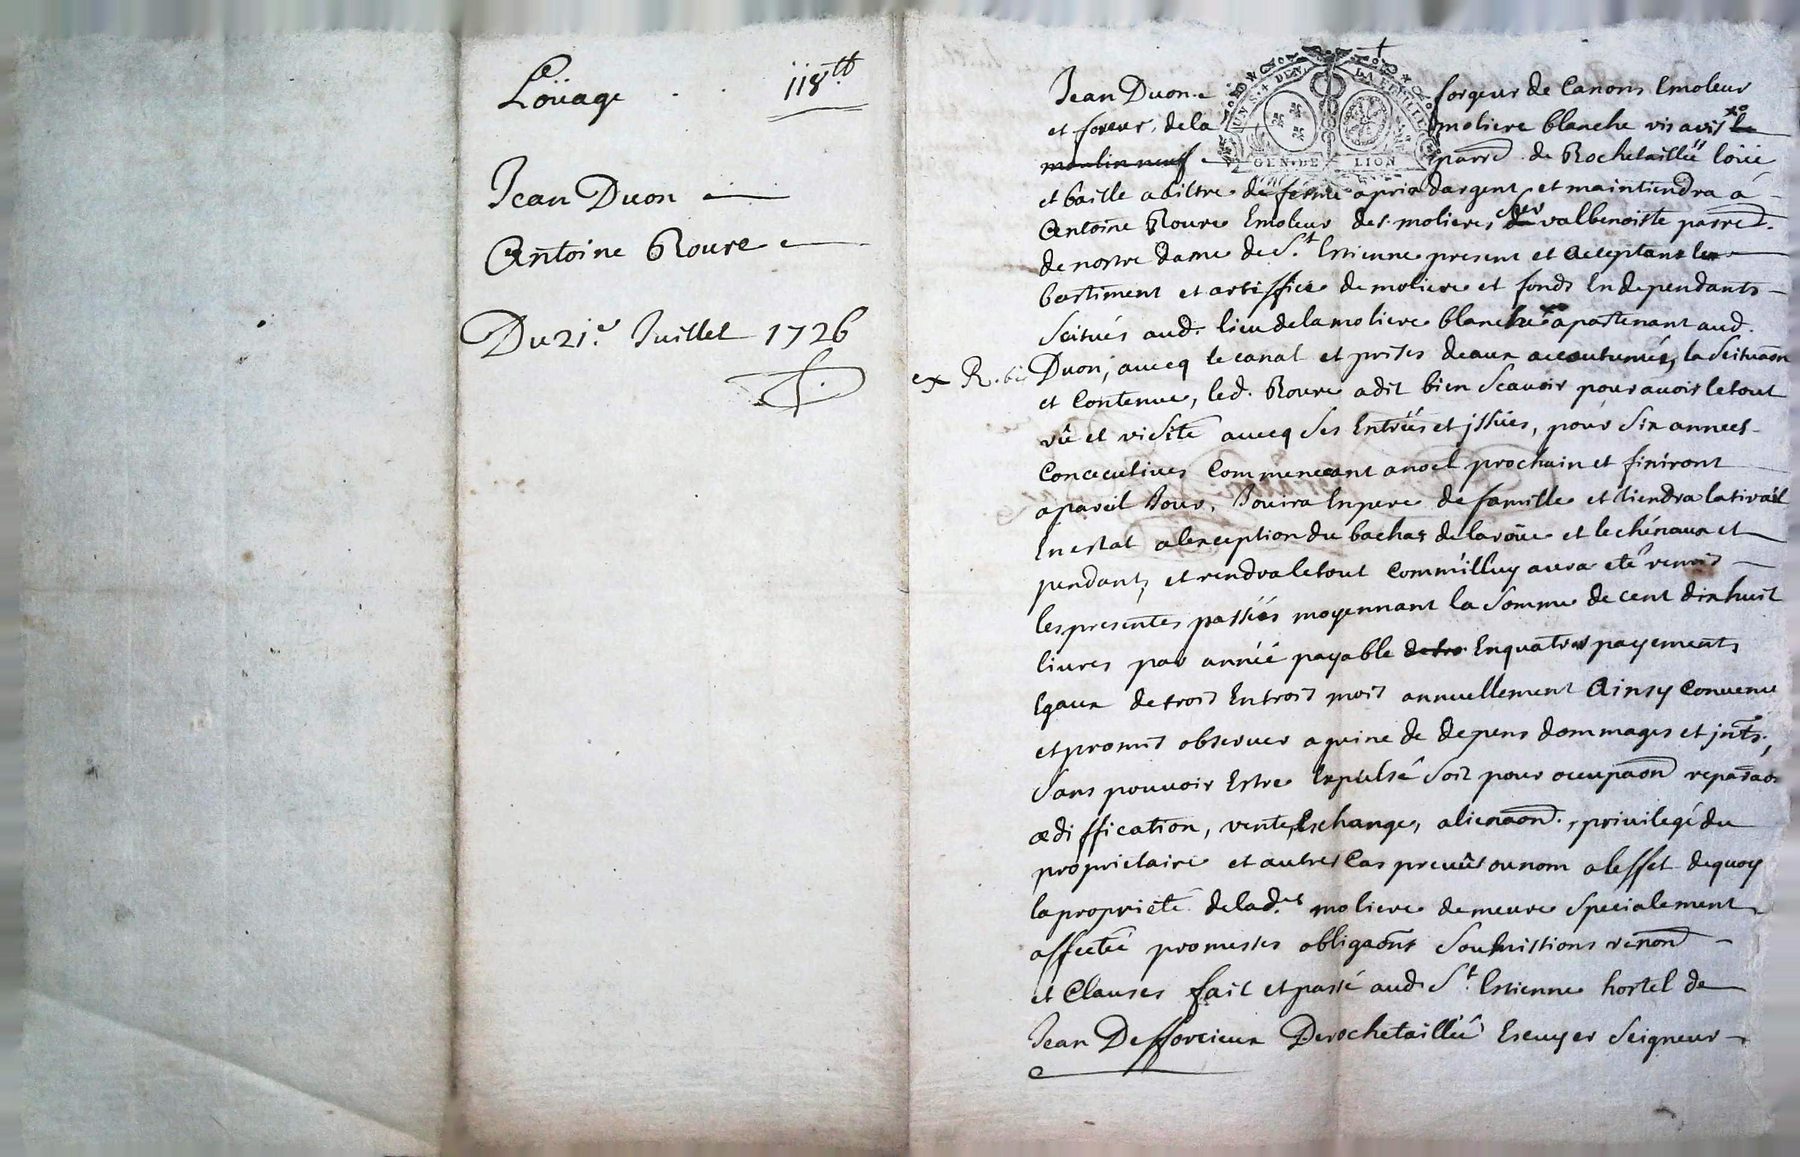 Loüage . . 118ᵗᵗ
Jean Duon
Antoine Roure
Du 21.ᵉ Juillet 1726
Jean Duon forgeur de Canons Emoleur
et foreur, de la moliere blanche vis avis le
moulin neuf parr.e de Rochetaillée loüe
et baille a tiltre de ferme a prix dargent et maintiendra a
Antoine Roure Emoleur des molieres de valbenoiste parr.e
de nostre dame de S.t Estienne present et acceptant les
bastiment et artiffice de moliere et fonds En dependants
Scitués aud. lieu de la moliere blanche apartenant aud.
ex R. Duon, avecq le canal et prises deaux accoutumées, la Scituaon
et Contenue, led. Roure a dit bien Scavoir pour avoir le tout
vû et visité avecq Ses Entrées et jssües, pour Six années
Concecutives Commencant a noel prochain et finiront
a pareil Jour, Jouira En pere de famille et tiendra la tirail
En estat a lexception du bachas de la roüe et le chénaux et
pendant, et rendra le tout Comm'illuy aura eté remis
les presentes passées moyennant la Somme de cent dix huit
livres par année payable de tro En quatre payements
Egaux de trois En trois mois annuellement Ainsy Convenu
et promis observer a peine de depens dommages et jnts.,
Sans pouvoir Estre Expulsé Soit pour occupaon reparaon
ædiffication, vente, Eschange, alienaon, privilegé du
proprietaire et autres Cas prevûs ou nom a leffet de quoy
la proprieté de lad. moliere demeure Specialement
affectée promesses obligaons Soumissions renon
et Clauses fait et passé aud S.t Estienne hostel de
Jean Deffercieux De rochetaillée Escuyer Seigneur
UN S. 4 DEN. LA FEUILLE
GEN. DE LION